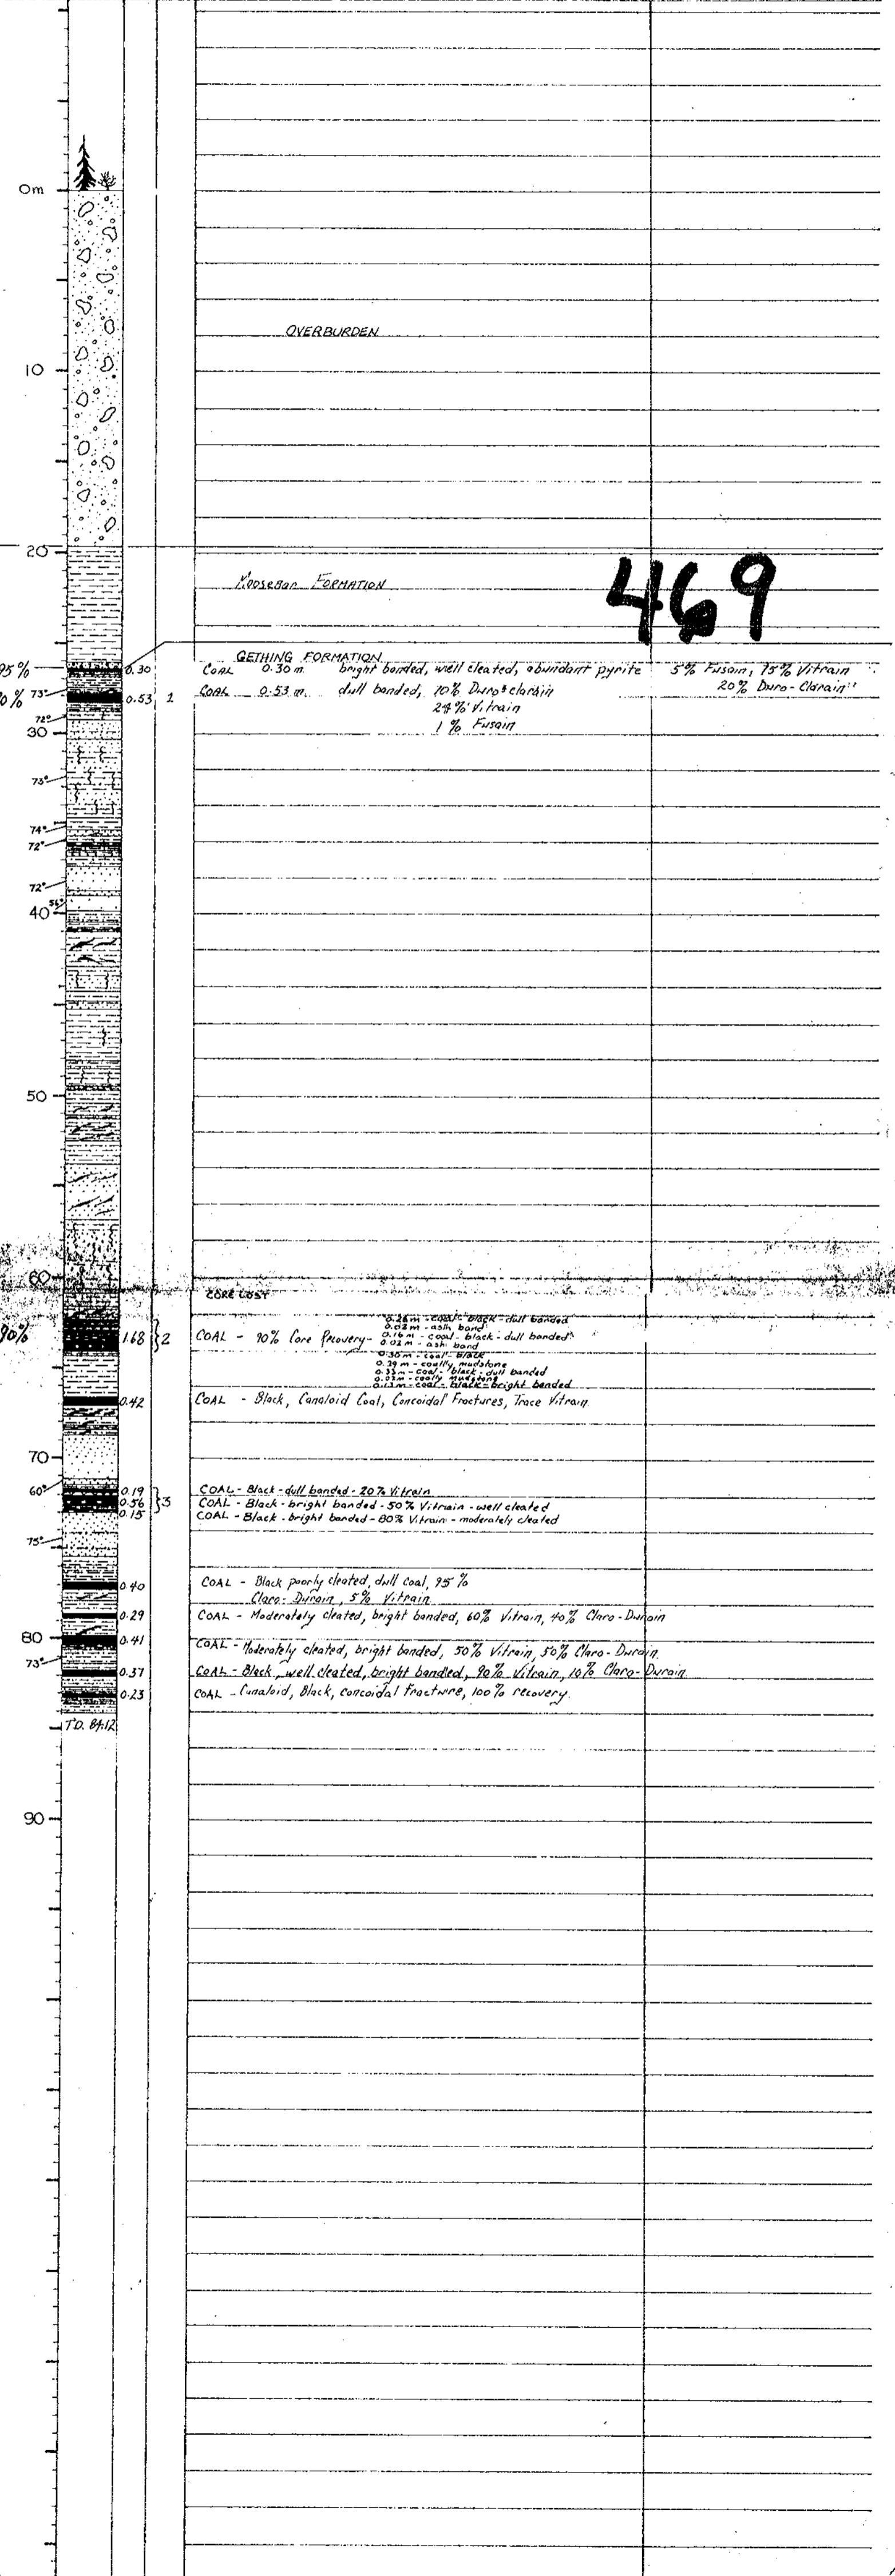 0m
OVERBURDEN
10
20
MOOSEBAR FORMATION
469
GETHING FORMATION
95% 0.30 COAL 0.30 m bright banded, well cleated, abundant pyrite 5% Fusain, 75% Vitrain
20% Duro-Clarain
0% 73° 0.53 1 COAL 0.53 m dull banded, 70% Duro+clarain
24% Vitrain
72°
1% Fusain
30
73°
74°
72°
72°
56°
40
50
60
CORE LOST
0.26m - coal - black - dull banded
0.02m - ash band
90% 1.68 2 COAL - 90% Core Recovery - 0.16m - coal - black - dull banded
0.02m - ash band
0.30m - coal - black
0.39m - coally mudstone
0.33m - coal - black - dull banded
0.03m - coally mudstone
0.13m - coal - black - bright banded
0.42 COAL - Black, Canaloid Coal, Concoidal Fractures, Trace Vitrain
70
60° 0.19 COAL - Black - dull banded - 20% Vitrain
0.56 3 COAL - Black - bright banded - 50% Vitrain - well cleated
0.15 COAL - Black - bright banded - 80% Vitrain - moderately cleated
75°
0.40 COAL - Black poorly cleated, dull coal, 95%
Claro-Durain, 5% Vitrain
0.29 COAL - Moderately cleated, bright banded, 60% Vitrain, 40% Claro-Durain
80 0.41 COAL - Moderately cleated, bright banded, 50% Vitrain, 50% Claro-Durain.
73°
0.37 COAL - Black, well cleated, bright banded, 90% Vitrain, 10% Claro-Durain
0.23 COAL - Canaloid, Black, concoidal fracture, 100% recovery.
T.D. 84.12
90